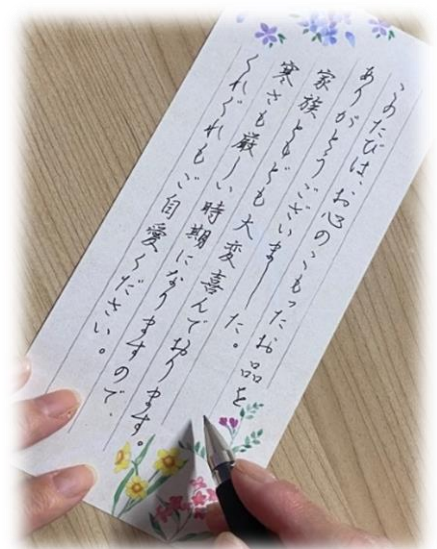 このたびは、お心のこもったお品を
ありがとうございました。
家族ともども大変喜んでおります。
寒さも厳しい時期になりますので、
くれぐれもご自愛ください。